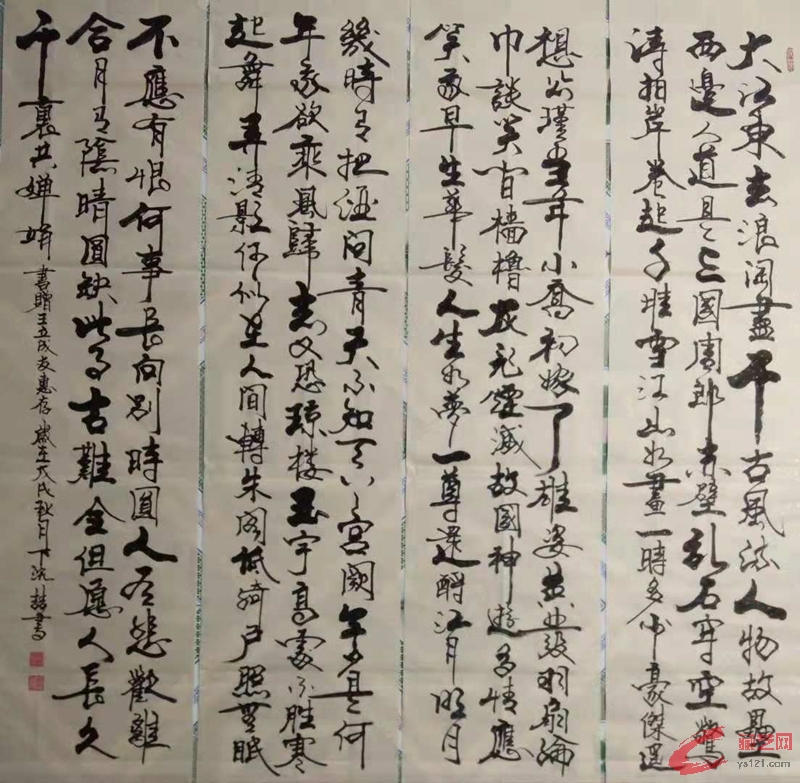 大江東去浪淘盡千古風流人物故壘
西邊人道是三國周郎赤壁亂石穿空驚
濤拍岸卷起千堆雪江山如畫一時多少豪傑遥
想公瑾當年小喬初嫁了雄姿英發羽扇綸
巾談笑间檣櫓灰飛煙滅故國神遊多情應
笑我早生華髮人生如夢一尊還酹江月明月
幾時有把酒問青天不知天上宮闕今夕是何
年我欲乘風歸去又恐琼楼玉宇高處不胜寒
起舞弄清影何似在人間轉朱阁低綺户照無眠
不應有恨何事長向别時圓人有悲歡離
合月有陰晴圓缺此事古難全但愿人長久
千里共嬋娟 書贈王立成友惠存 歲在戊戌秋月 喆書
ys121.com